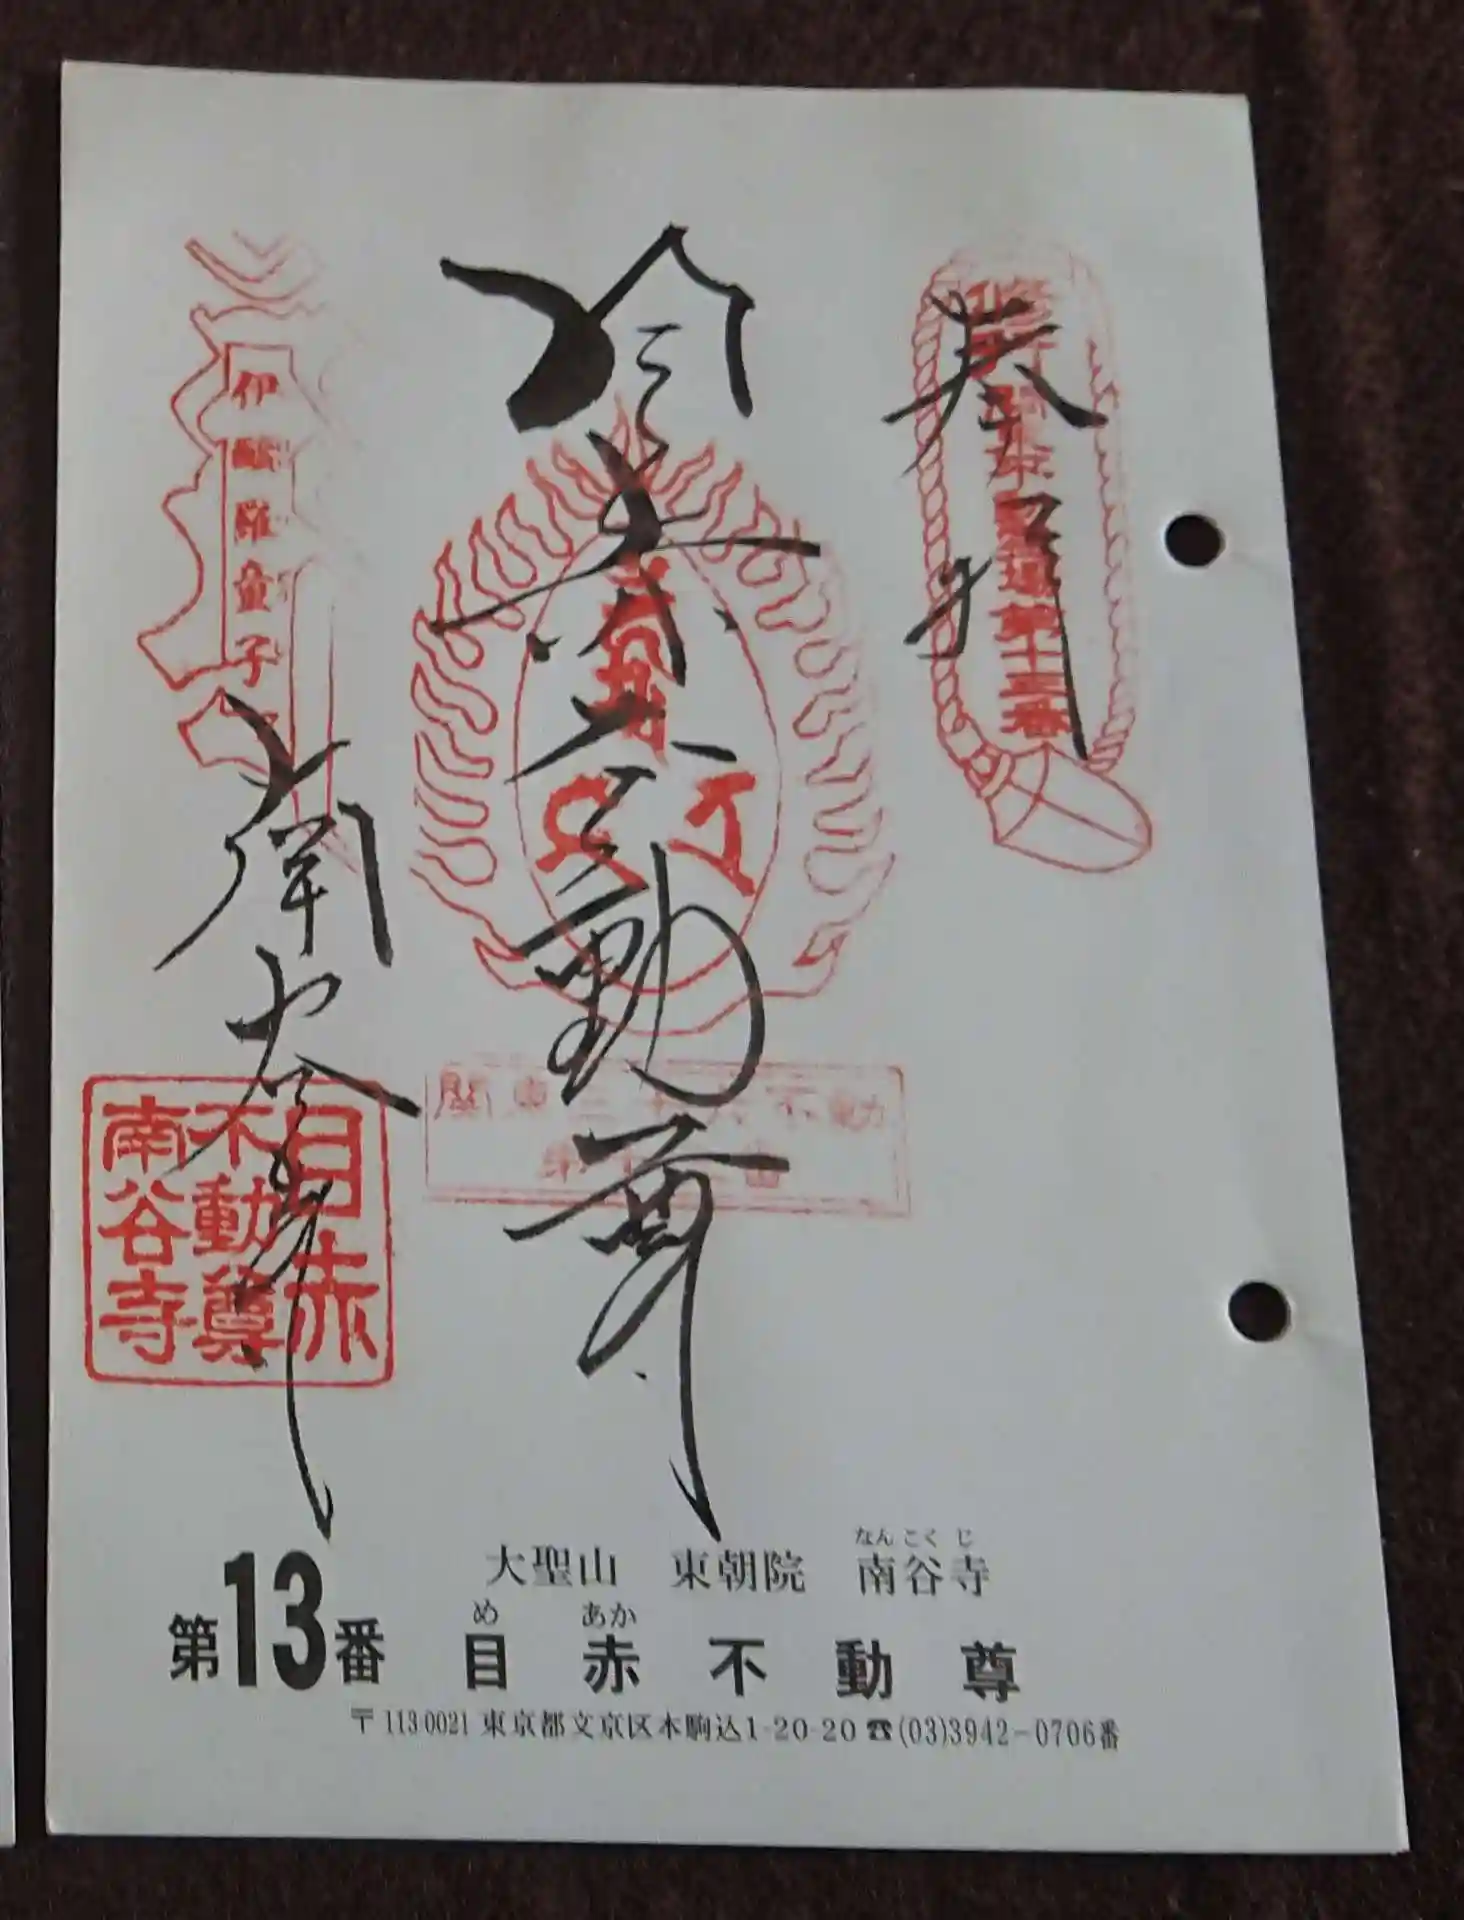 奉拝
目赤不動尊
南谷寺
伊醯羅童子
目赤
不動尊
南谷寺
関東三十六不動
なんこくじ
大聖山 東朝院 南谷寺
め あか
第13番 目赤不動尊
〒113-0021 東京都文京区本駒込1-20-20 ☎(03)3942-0706番